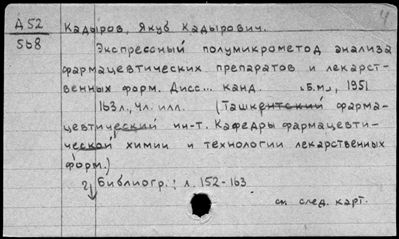 Д 52 Кадыров, Якуб Кадырович. 4
568 Экспрессный полумикрометод анализа
фармацевтических препаратов и лекарст-
венных форм. Дисс... канд. "Б.м.", 1951
163 л., чл. илл. (Ташкентский фарма-
цевтический ин-т. Кафедры фармацевти-
ческой химии и технологии лекарственных
форм.)
Библиогр.: л. 152-163
см. след. карт.